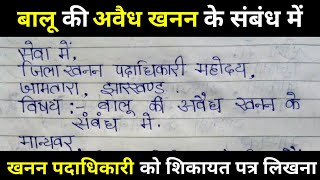 बालू की अवैध खनन के संबंध में
सेवा में,
जिला खनन पदाधिकारी महोदय,
जामतारा, झारखण्ड.
विषय :- बालू की अवैध खनन के
संबंध में.
मान्यवर
खनन पदाधिकारी को शिकायत पत्र लिखना